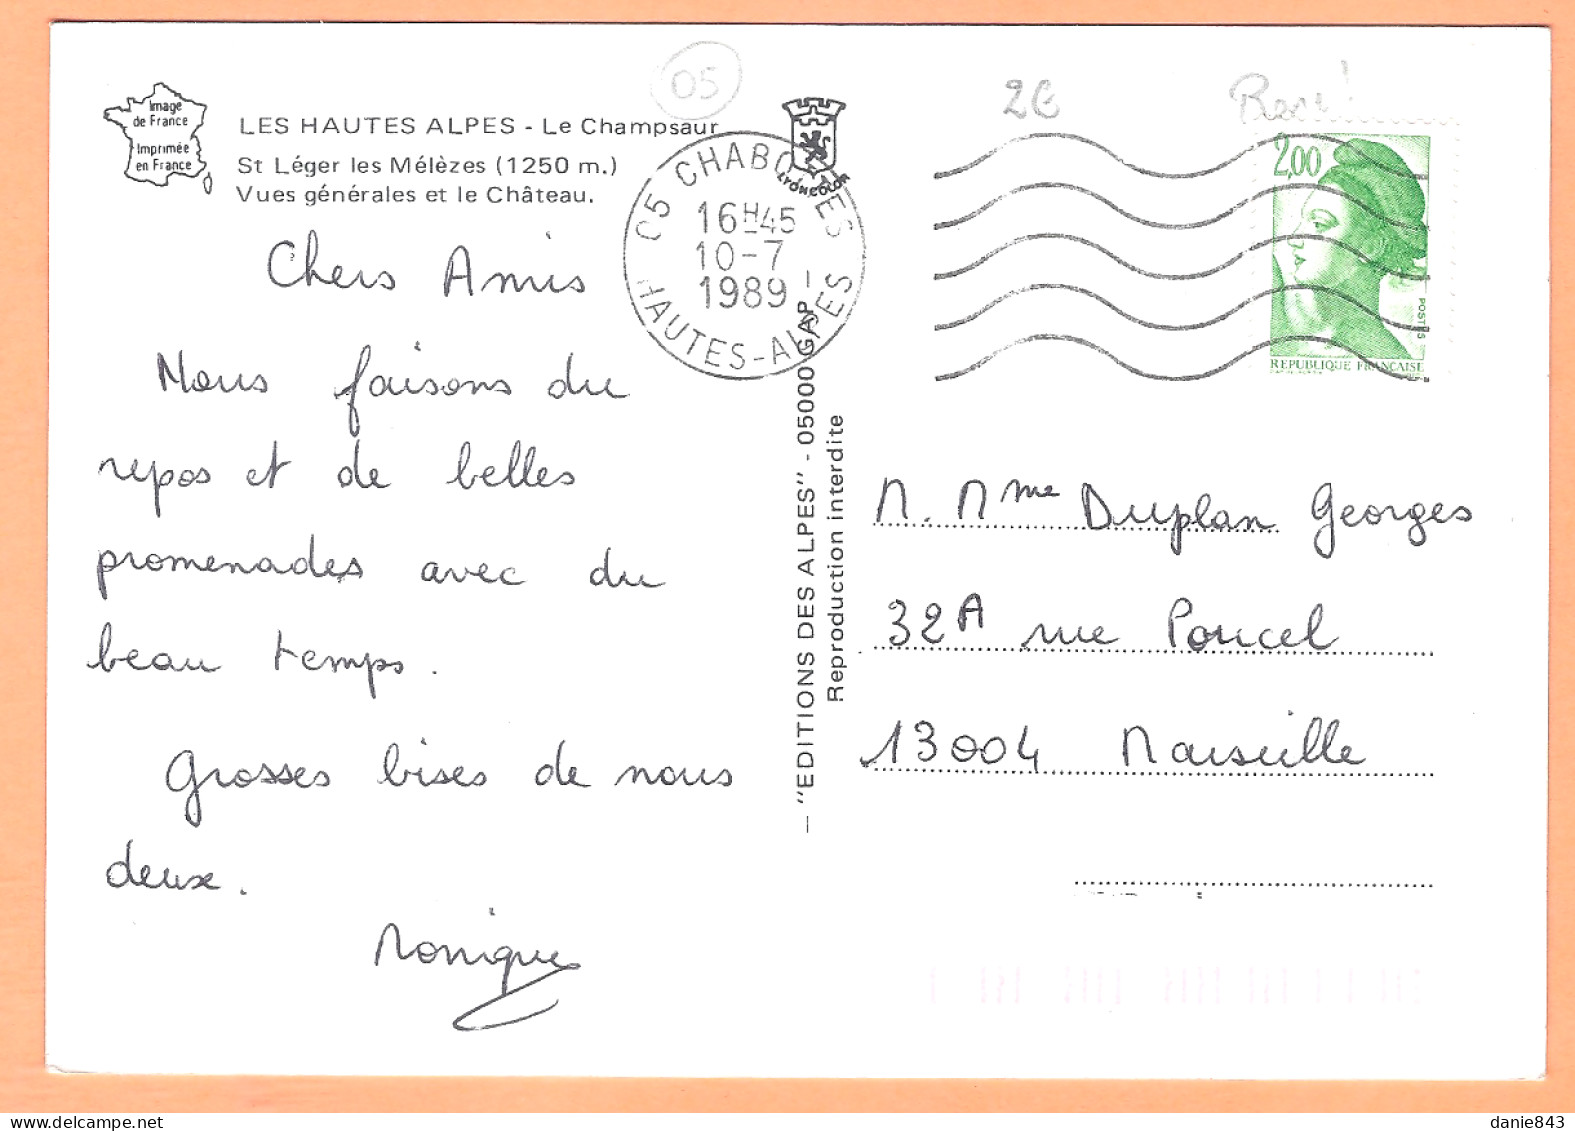 Image
de France
Imprimée
en France
LES HAUTES ALPES - Le Champsaur
St Léger les Mélèzes (1250 m.)
Vues générales et le Château.
05
LYONCOLOR
05 CHABOTTES
16H45
10-7
1989
HAUTES-ALPES
2€
Rare!
2,00
POSTES
REPUBLIQUE FRANÇAISE
Chers Amis
Nous faisons du
repos et de belles
promenades avec du
beau temps.
Grosses bises de nous
deux.
Monique
— "EDITIONS DES ALPES" - 05000 GAP —
Reproduction interdite
M. Mme Duplan Georges
32A rue Poucel
13004 Marseille
danie843